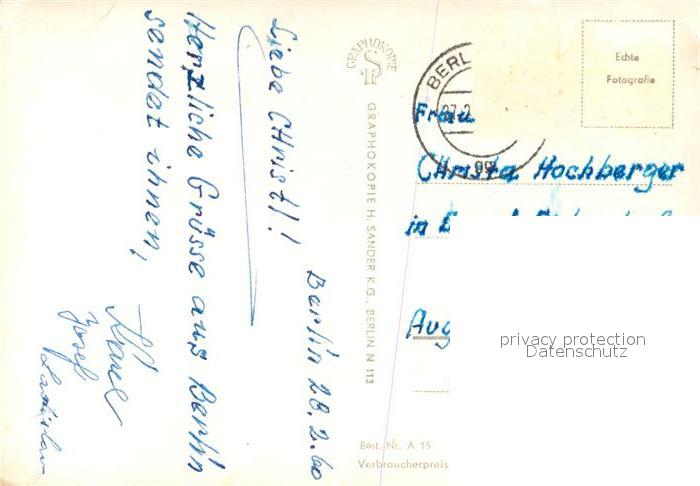 Berlin 28.2.60
Liebe Christl!
Herzliche Grüsse aus Berlin
sendet ihnen,
Karel
Josef
Ladislav
GRAPHOKOPIE
GRAPHOKOPIE H. SANDER K.G., BERLIN N 113
BERL
Echte
Fotografie
Frau
Christa Hochberger
in
Aug
privacy protection
Datenschutz
Best. Nr. A 15
Verbraucherpreis